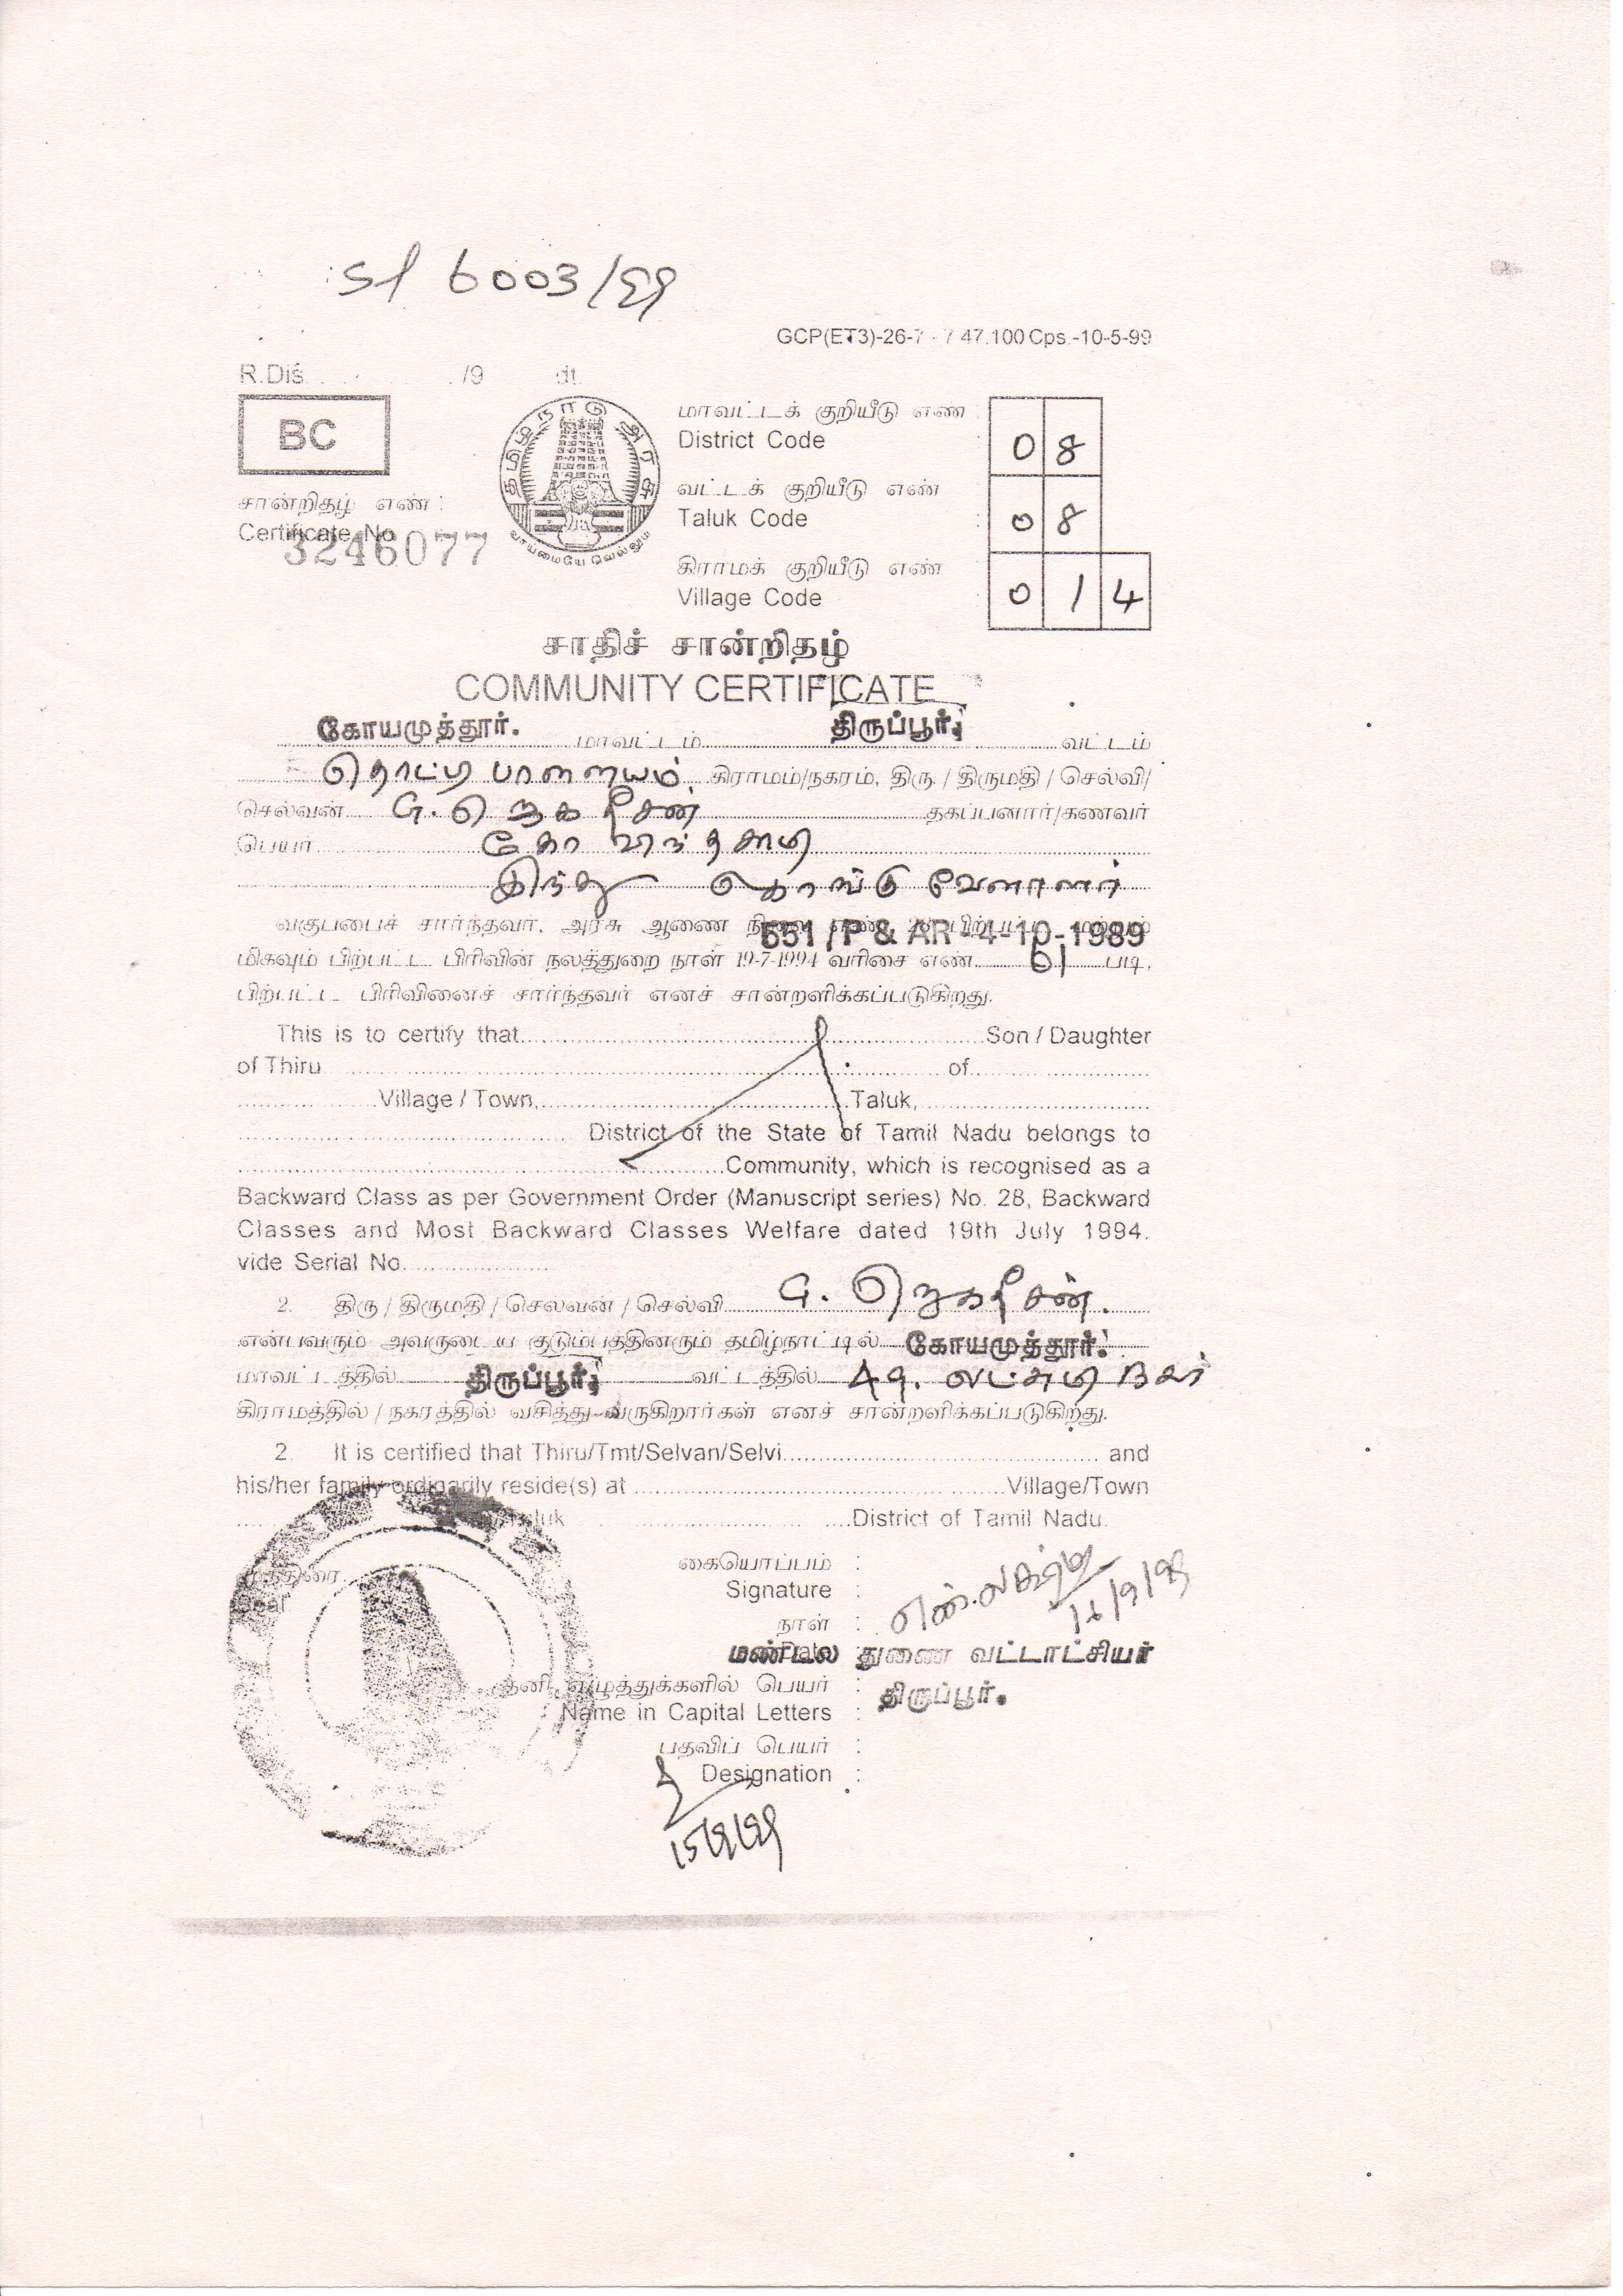 6003/99
GCP(ET3)-26-7 - 7 47.100 Cps.-10-5-99
R.Dis. /9 dt.
BC
தமிழ்நாடு அரசு
வாய்மையே வெல்லும்
மாவட்டக் குறியீடு எண்
District Code 08
வட்டக் குறியீடு எண் :
Taluk Code 08
கிராமக் குறியீடு எண்
Village Code 014
சான்றிதழ் எண் :
Certificate No
3246077
சாதிச் சான்றிதழ்
COMMUNITY CERTIFICATE
கோயமுத்தூர். மாவட்டம் திருப்பூர் வட்டம்
தொட்டி பாளையம் கிராமம்/நகரம், திரு. / திருமதி / செல்வி/
செல்வன் G. ஜெகதீசன் தகப்பனார்/கணவர்
பெயர் கோவிந்தசாமி
இந்து கொங்கு வேளாளர்
வகுப்பைச் சார்ந்தவர், அரசு ஆணை
651 /P & AR -4-10-1989
மிகவும் பிற்பட்ட பிரிவின் நலத்துறை நாள் 19-7-1994 வரிசை எண் 61 படி,
பிற்பட்ட பிரிவினைச் சார்ந்தவர் எனச் சான்றளிக்கப்படுகிறது.
This is to certify that Son / Daughter
of Thiru of
Village / Town, Taluk,
District of the State of Tamil Nadu belongs to
Community, which is recognised as a
Backward Class as per Government Order (Manuscript series) No. 28, Backward
Classes and Most Backward Classes Welfare dated 19th July 1994.
vide Serial No.
2. திரு / திருமதி / செலவன் / செல்வி G. ஜெகதீசன்.
என்பவரும் அவருடைய குடும்பத்தினரும் தமிழ்நாட்டில் கோயமுத்தூர்.
மாவட்டத்தில் திருப்பூர் வட்டத்தில் 49. லட்சுமி நகர்
கிராமத்தில் / நகரத்தில் வசித்து வருகிறார்கள் எனச் சான்றளிக்கப்படுகிறது.
2. It is certified that Thiru/Tmt/Selvan/Selvi and
his/her family ordinarily reside(s) at Village/Town
District of Tamil Nadu.
கையொப்பம் :
Signature :
நாள் :
மண்டல துணை வட்டாட்சியர்
தனி எழுத்துக்களில் பெயர் : திருப்பூர்.
Name in Capital Letters :
பதவிப் பெயர் :
Designation :
15/9/99